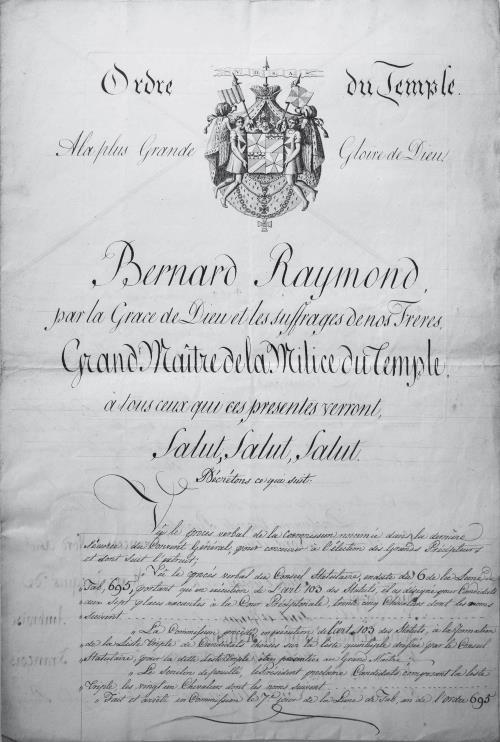 Ordre du Temple.
A la plus Grande Gloire de Dieu,
Bernard Raymond,
par la Grace de Dieu et les suffrages de nos Freres,
Grand Maître de la Milice du Temple,
à tous ceux qui ces presentes verront,
Salut, Salut, Salut.
Décrétons ce qui suit:
Vu le procès verbal de la Commission nommée dans la dernière
Séance du Couvent Général, pour concourir à l'élection des Grands Précepteurs
et dont suit l'extrait;
" Vu le procès verbal du Conseil Statutaire, en date du 6 de la Lune de
" Tab, 695, portant qu'en exécution de l'art. 103 des Statuts, il a désigné pour Candidats
" aux Sept places vacantes à la Cour Préceptoriale, cinq Chevaliers dont les noms
" Suivent
" La Commission procède en exécution de l'art. 103 des Statuts, à la formation
" de la Liste Triple de Candidats choisis sur la liste quintuple dressée par le Conseil
" Statutaire, pour la dite Liste triple être présentée au Grand Maître
" Le Scrutin dépouillé, le Président proclame Candidats composant la liste
" Triple les vingt un Chevaliers dont les noms suivent
" Fait et arrêté en Commission le 7e jour de la Lune de Tab, an de l'ordre 695